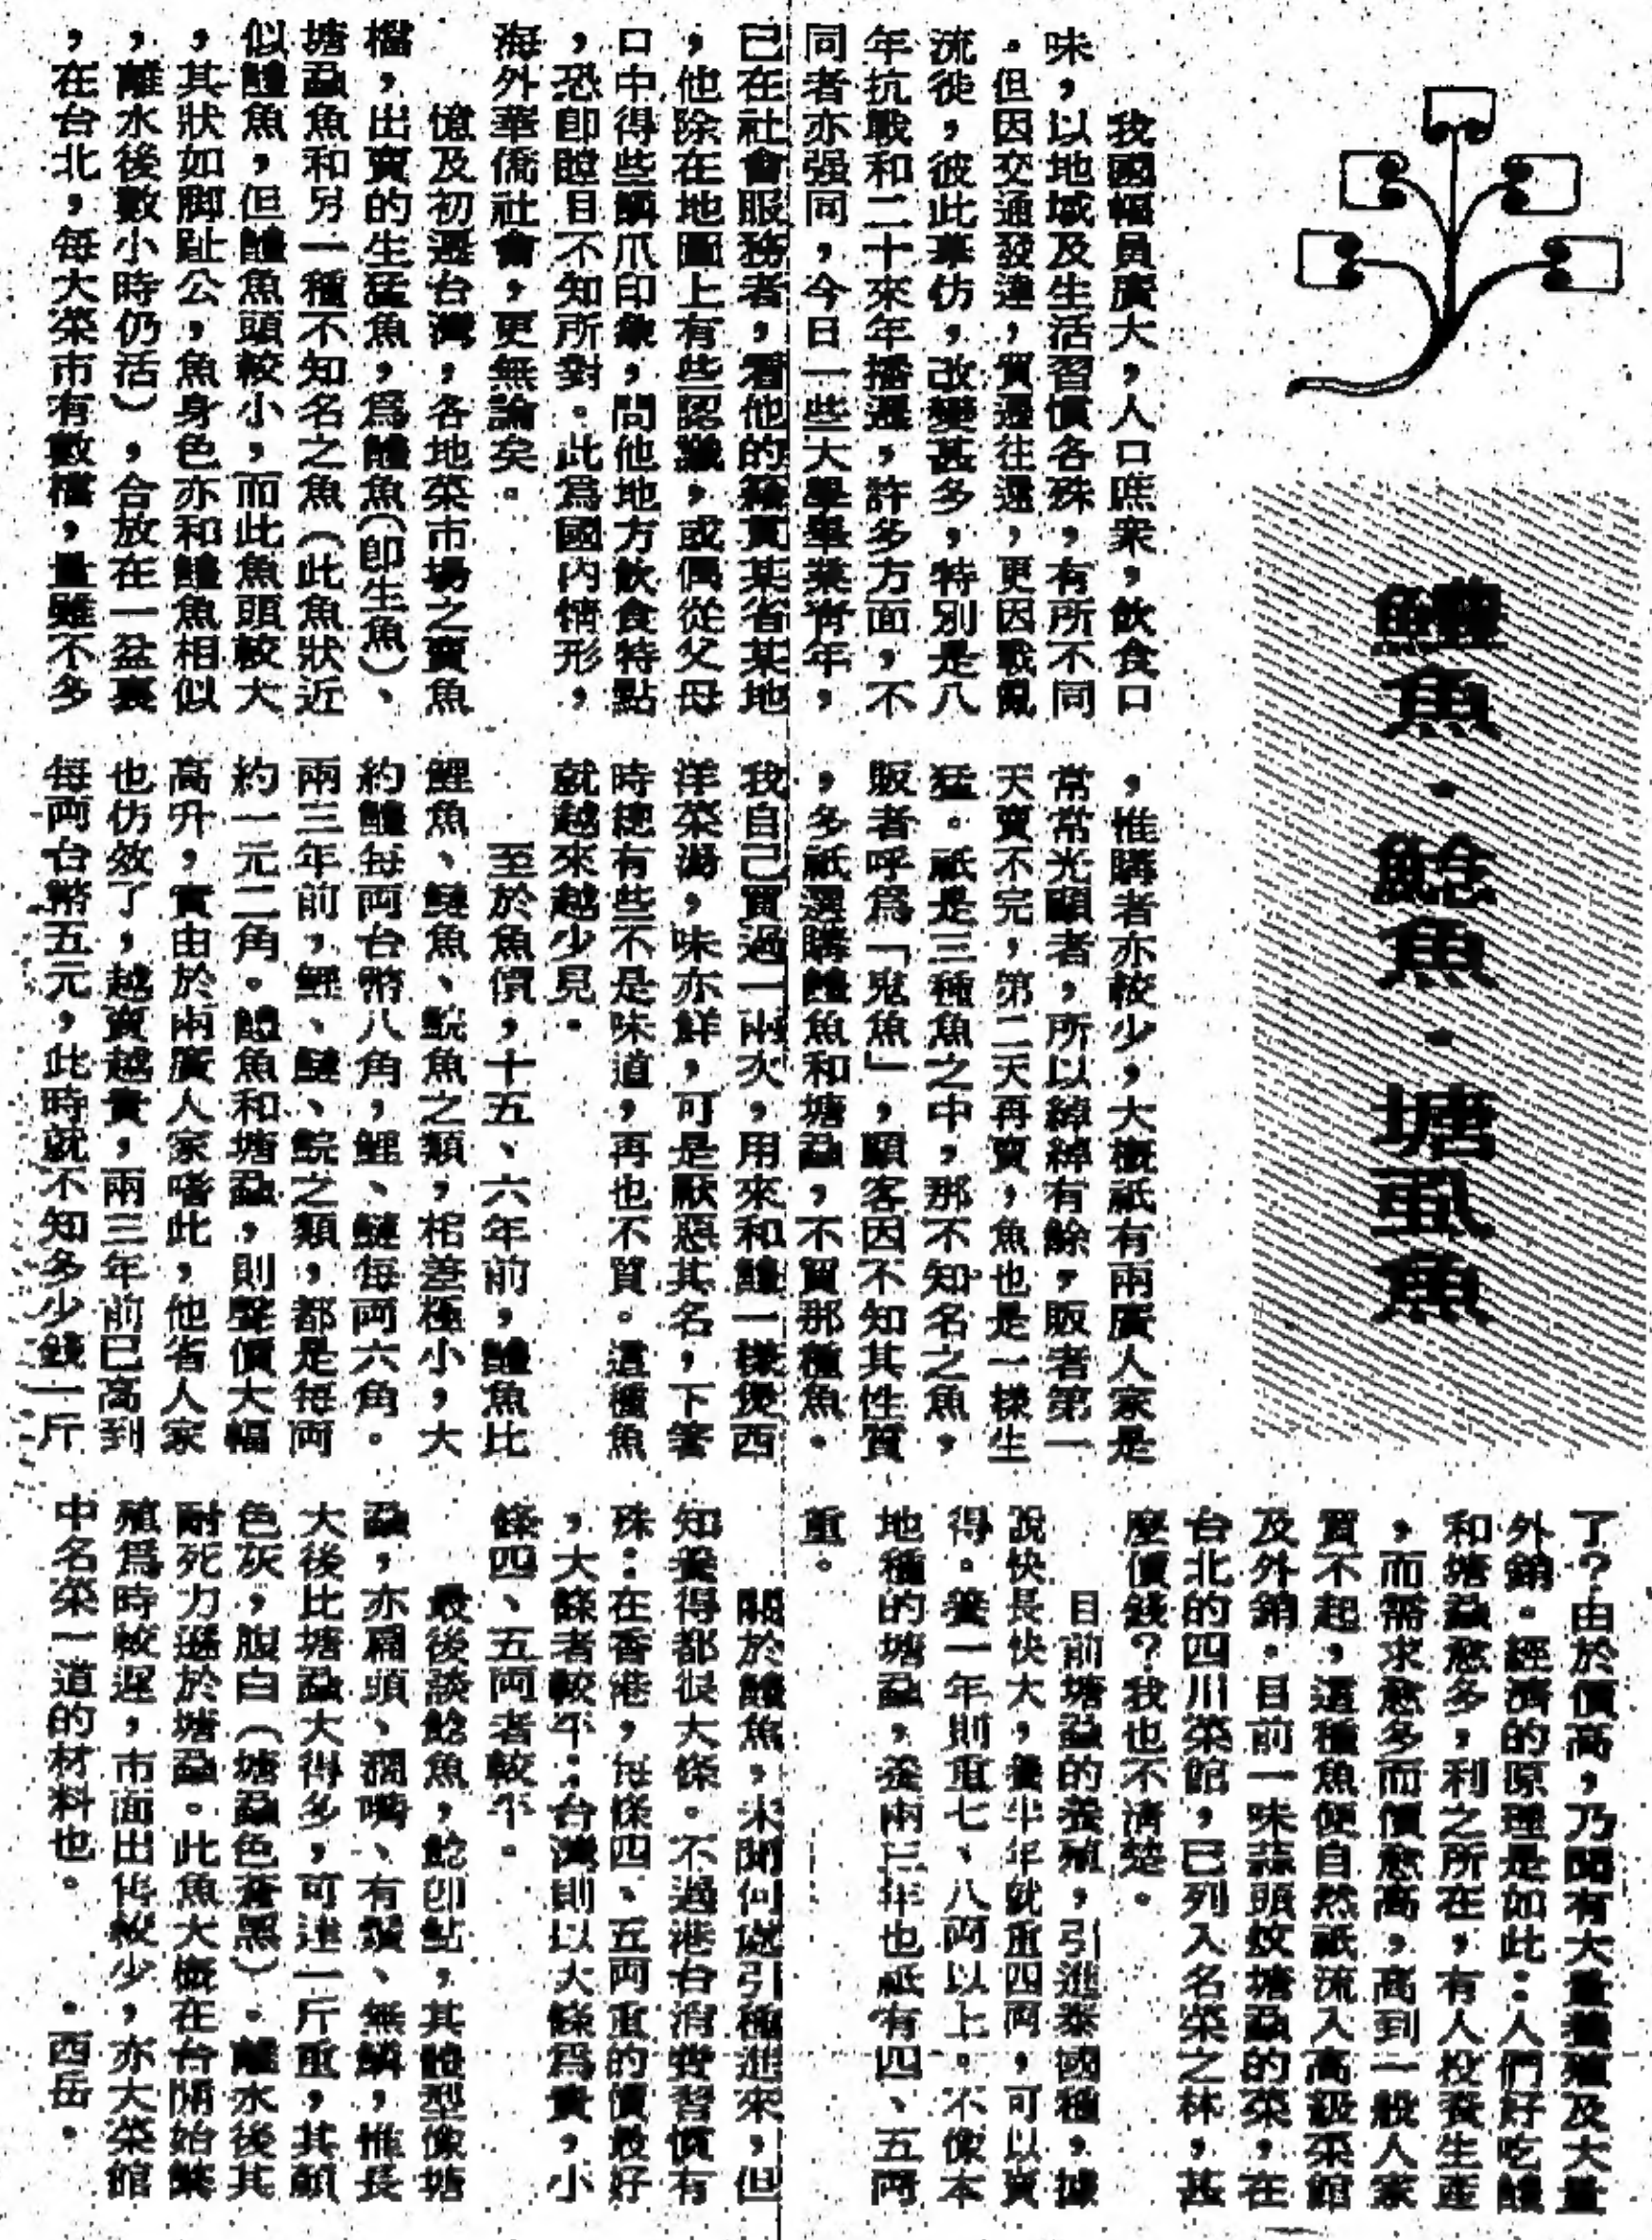 鱧魚·鯰魚·塘虱魚
我國幅員廣大，人口庶衆，飲食口
味，以地域及生活習慣各殊，有所不同
。但因交通發達，貿遷往還，更因戰亂
流徙，彼此摹仿，改變甚多，特別是八
年抗戰和二十來年播遷，許多方面，不
同者亦强同，今日一些大學畢業靑年，
已在社會服務者，看他的籍貫某省某地
，他除在地圖上有些認識，或偶從父母
口中得些鱗爪印象，問他地方飲食特點
，恐卽瞠目不知所對。此爲國內情形，
海外華僑社會，更無論矣。
憶及初遷台灣，各地菜市場之賣魚
檔，出賣的生猛魚，爲鱧魚（卽生魚）、
塘虱魚和另一種不知名之魚（此魚狀近
似鱧魚，但鱧魚頭較小，而此魚頭較大
，其狀如脚趾公，魚身色亦和鱧魚相似
，離水後數小時仍活），合放在一盆裏
，在台北，每大菜市有數檔，量雖不多
，惟購者亦較少，大槪祇有兩廣人家是
常常光顧者，所以綽綽有餘，販者第一
天賣不完，第二天再賣，魚也是一樣生
猛。祇是三種魚之中，那不知名之魚，
販者呼爲「鬼魚」，顧客因不知其性質
，多祇選購鱧魚和塘虱，不買那種魚。
我自己買過一兩次，用來和鱧一樣煲西
洋菜湯，味亦鮮，可是厭惡其名，下箸
時總有些不是味道，再也不買。這種魚
就越來越少見。
至於魚價，十五、六年前，鱧魚比
鯉魚、鰱魚、鯇魚之類，相差極小，大
約鱧每両台幣八角，鯉、鰱每両六角。
兩三年前，鯉、鰱、鯇之類，都是每両
約一元二角。鱧魚和塘虱，則聲價大幅
高升，實由於兩廣人家嗜此，他省人家
也仿效了，越賣越貴，兩三年前已高到
每両台幣五元，此時就不知多少錢一斤
了？由於價高，乃聞有大量養殖及大量
外銷。經濟的原理是如此：人們好吃鱧
和塘虱愈多，利之所在，有人投資生產
，而需求愈多而價愈高，高到一般人家
買不起，這種魚便自然祇流入高級菜館
及外銷。目前一味蒜頭炆塘虱的菜，在
台北的四川菜館，已列入名菜之林，甚
麼價錢？我也不淸楚。
目前塘虱的養殖，引進泰國種，據
說快長快大，養半年就重四両，可以賣
得。養一年則重七、八両以上。不像本
地種的塘虱，養兩三年也祇有四、五両
重。
關於鱧魚，未聞何處引種進來，但
知養得都很大條。不過港台消費習慣有
殊：在香港，每條四、五両重的價最好
，大條者較平；台灣則以大條爲貴，小
條四、五両者較平。
最後談鯰魚，鯰卽鮎，其體型像塘
虱，亦扁頭、濶嘴、有鬚、無鱗，惟長
大後比塘虱大得多，可達一斤重，其顏
色灰，腹白（塘虱色蒼黑）。離水後其
耐死力遜於塘虱。此魚大槪在台開始繁
殖爲時較遲，市面出售較少，亦大菜館
中名菜一道的材料也。 ·西岳·